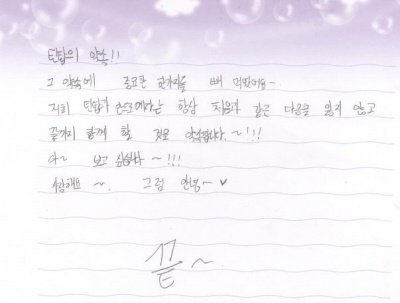 틴탑의 약속!!
그 약속에 중요한 한가지를 빼 먹었어요~
저희 틴탑과 천지에다는 항상 처음과 같은 마음을 잃지 않고
끝까지 함께 할 것을 약속합니다.~!!!
아~ 보고 싶습니다~!!!
사랑해요~. 그럼 안녕~♥
끝~